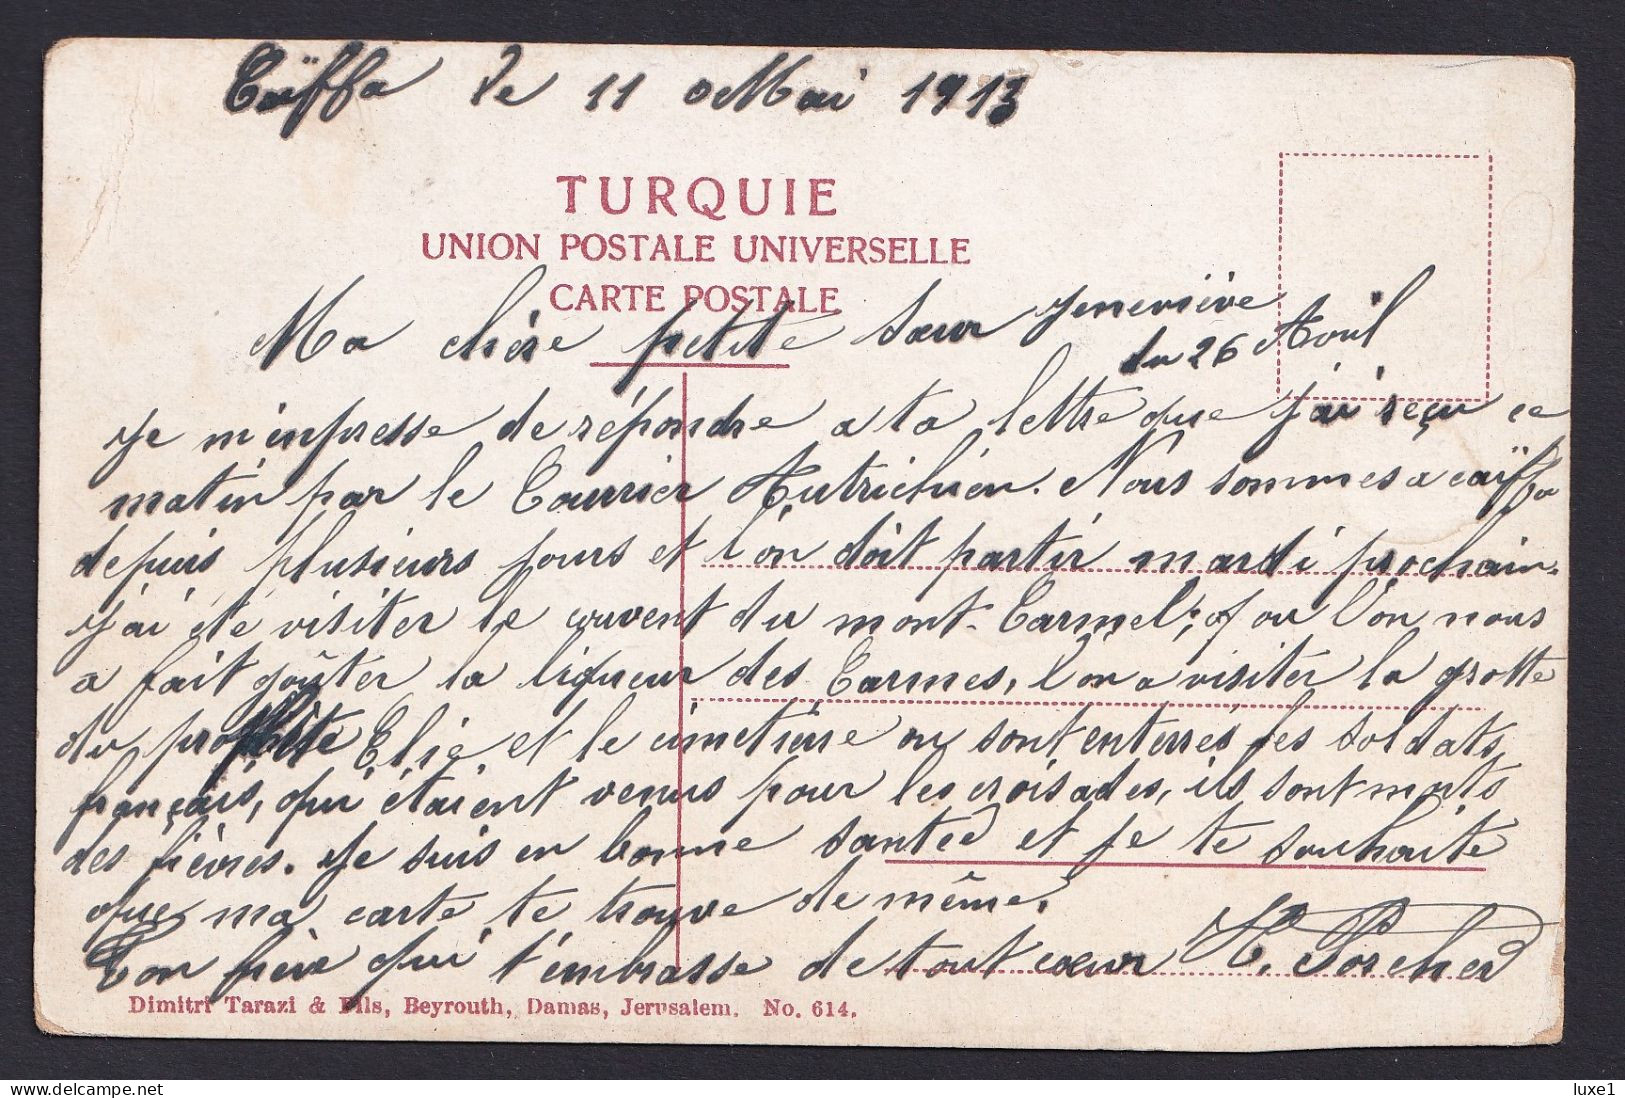 Caïffa le 11 Mai 1913
TURQUIE
UNION POSTALE UNIVERSELLE
CARTE POSTALE
Ma chère petite Sœur Geneviève
du 26 Avril
Je m'enpresse de répondre a ta lettre que j'ai reçu ce
matin par le Courrier Autrichien. Nous sommes a Caïffa
depuis plusieurs jours et l'on doit partir mardi prochain.
J'ai été visiter le couvent du mont-Carmel; ou l'on nous
a fait goûter la liqueur des Carmes, l'on a visiter la grotte
du prophète Elie, et le cimetière ou sont enterrés les soldats
français, qui étaient venus pour les croisades, ils sont morts
des fièvres. Je suis en bonne santée et je te souhaite
que ma carte te trouve de même.
Ton frère qui t'embrasse de tout cœur
Dimitri Tarazi & Fils, Beyrouth, Damas, Jerusalem. No. 614.
luxe1